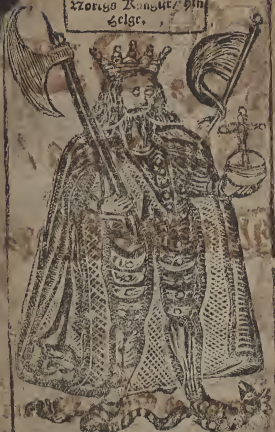 Noregs Kongur/ hin
helge.